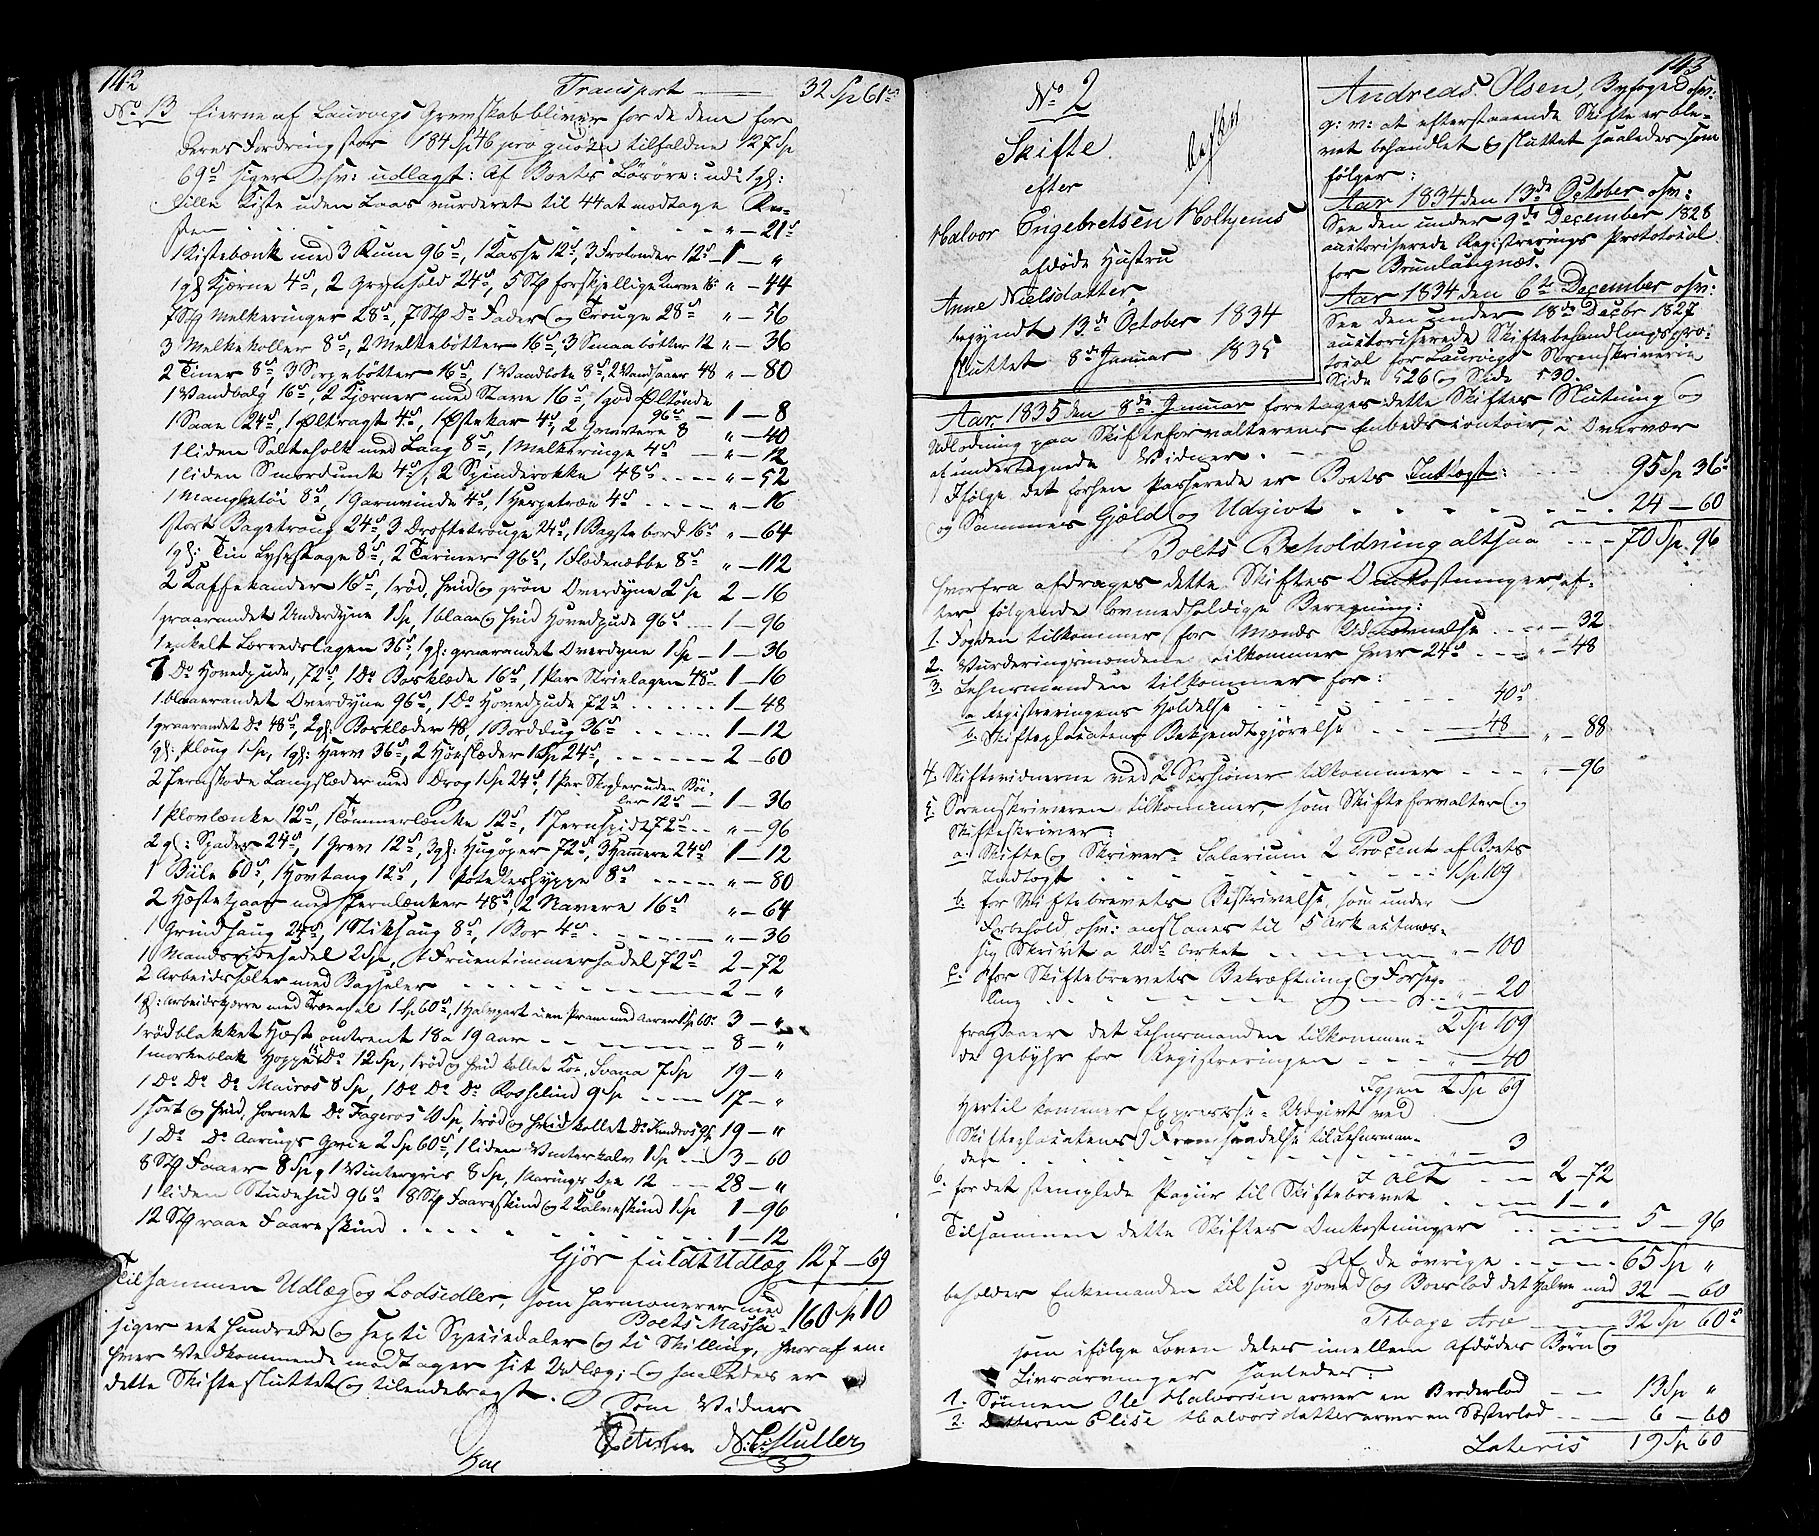 142
Transport — 32 Sp 61 s
No 13 Eierne af Laurvigs Grevskab bliver for de dem for
deres Fordring stor 184 Sp 46 pro quota tilfaldne 127 Sp
69 s siger udlagt: Af Boets Løsøre: 1 gl:
lille Kiste uden Laas vurderet til 44 at modtage
" — 21 s
1 Kistebænk med 3 Rum 96 s, 1 Kasse 12 s, 3 12 s — 1 — "
1 gl Kjærne 4 s, 2 24 s, 5 Stk forskjellige Kurve 16 s " — 44
7 Stk Melkeringer 28 s, 7 Stk Do Fader og Trouge 28 s " — 56
3 Melkekoller 8 s, 2 Melkebøtter 16 s, 3 Smaabøtter 12 " — 36
2 Tiner 8 s, 3 16 s, 1 8 s, 2 Vandsaaer 48 " — 80
1 Vandbalg 16 s, 2 Kjærner med Stave 16 s, 1 god Øltønde
96 s — 1 — 8
1 Saae 24 s, 1 Øltragt 4 s, 1 Østekar 4 s, 2 8 " — 40
1 liden med Laag 8 s, 1 Melkeringe 4 s — " — 12
1 liden Smørdunk 4 s, 2 Spinderokke 48 s " — 52
1 8 s, 1 Garnvinde 4 s, 1 4 s " — 16
1 stort Bagetroug 24 s, 3 Drøftetrouge 24 s, 1 Bagstebord 16 s " — 64
1 gl: Tin Lysestage 8 s, 2 Teriner 96 s, 1 8 s " — 112
2 Kaffekander 16 s, 1 rød, hvid og grøn Overdyne 2 Sp 2 — 16
1 graarandet Underdyne 1 Sp, 1 blaae og hvid Hovedpude 96 s 1 — 96
1 enkelt Lærredslagen 36 s, 1 gl: graarandet Overdyne 1 Sp — 1 — 36
1 Do Hovedpude, 72 s, 1 Do 16 s, 1 Par Strielagen 48 s 1 — 16
1 blaaerandet Overdyne 96 s, 1 Do Hovedpude 72 s 1 — 48
1 graarandet Do 48 s, 2 gl: 48, 1 Borddug 36 s 1 — 12
1 gl: Ploug 1 Sp, 1 gl: Harv 36 s, 2 1 Sp 24 s, 2 — 60
2 Langslæder med Drog 1 Sp 24 s, 1 Par uden
12 s — 1 — 36
1 Plovlænke 12 s, 1 Tømmerlænke 12 s, 1 Jernspid 72 s " — 96
2 gl: Spader 24 s, 1 Grev 12 s, 3 gl: Hugøxer 72 s, 3 Hamere 24 s 1 — 12
1 Biile 60 s, 1 Hovtang 12 s, 1 Poteteshyppe 8 s " — 80
2 med Jernlænker 48 s, 2 Navere 16 s " — 64
1 Grindsaug 24 s, 1 Stiksaug 8 s, 1 Bor 4 s " — 36
1 Mandsridesadel 2 Sp, 1 Fruentimmersadel 72 s 2 — 72
2 Arbeidsseler med Bagseler 2 — "
1 gl: Arbeidskjærre med 1 Sp 60 s, 1 Halvpart i en Pram med Aarer 1 Sp 60 s 3 — "
1 rødblakket Hæst omtrent 18 a 19 Aar 8 — "
1 morkeblak Hoppe Do 12 Sp, 1 rød og hvid kollet Koe, Svana 7 Sp 19 — "
1 Do Do Do Mairos 8 Sp, 1 Do Do Do Rosselind 9 Sp 17 — "
1 sort og hvid, hornet Do Fageros 10 Sp, 1 rød og hvid kollet Do 9 Sp 19 — "
1 Do Do Aarings Qvie 2 Sp 60 s, 1 liden Vinterkalv 1 Sp 3 — 60
8 Stk Faaer 8 Sp, 1 Vintergris 8 Sp, 1 Aarings 12 28 — "
1 liden Studehud 96 s 8 Stk Faareskind og 2 Kalveskind 1 Sp 1 — 96
12 Stk raae Faareskind 1 — 12
Gjør fuldt Udlæg 127 — 69
Tilsammen Udlæg og Lodsedler, som harmonerer med
Boets Massa 160 Sp 10
siger eet Hundrede og sexti Speciedaler og ti Skilling, hvoraf en-
hver Vedkommende modtager sit Udlæg; og saaledes er
dette Skifte sluttet og tilendebragt.
Som Vidner
Petersen N. C. Muller
143
No 2
Skifte
efter
Halvor Engebretsen Holtjems
afdøde Hustru
Anne Nielsdatter,
begyndt 13de October 1834
sluttet 8de Januar 1835
Andreas Olsen, Byfoged osv:
g: v: at efterstaaende Skifte er ble-
vet behandlet og sluttet saaledes som
følger:
Aar 1834 den 13de October osv:
See den under 9de December 1828
autoriserede Registrerings Protokol
for Brunlaugnæs.
Aar 1834 den 6te December osv:
See den under 18de Decbr 1827
autoriserede Skiftebehandlingspro-
tocol for Laurvigs Sorenskriverie
Side 526 og Side 530.
Aar 1835 den 8de Januar foretages dette Skiftes Slutning og
Udlodning paa Skifteforvalterens Embedscontoir, i Overvær
af undertegnede Vidner.
Ifølge det forhen Passerede er Boets Indtægt: 95 Sp 36 s
og Sammes Gjæld og Udgivt 24 — 60
Boets Beholdning altsaa 70 Sp. 96
hvorfra afdrages dette Skiftes Omkostninger, ef-
ter følgende lovmedholdige Beregning:
1. Fogden tilkommer for Mænds Udnævnelse " — 32
2. Vurderingsmændene tilkommer hver 24 s " — 48
3. Lehnsmanden tilkommer for:
a. Registreringens Holdelse 40 s
b. Skifteplacatens Bekjendtgjørelse 48 " — 88
4. Skiftevidnerne ved 2 Sessioner tilkommer " — 96
5. Sorenskriveren tilkommer, som Skifteforvalter og
Skifteskriver:
a. Skifte og Skriver-Salarium 2 Procent af Boets
Indtægt 1 Sp 109
b. for Skiftebrevets Beskrivelse, som under
Forbehold osv: anslaaes til 5 Ark
Skrivt a 20 s Arket " — 100
c. for Skiftebrevets Bekræftning og Forseg-
ling " — 20
2 Sp 109
fragaaer det Lehnsmanden tilkommen-
de Gebyhr for Registreringen " — 40
Igjen 2 Sp 69
Hertil kommer Expresse-Udgivt ved
Skifteplacatens Fremsendelse til Lehnsman-
den " — 3
I Alt 2 — 72
6. for det stemplede Papiir til Skiftebrevet 1 — "
Tilsammen dette Skiftes Omkostninger 5 — 96
Af de øvrige 65 Sp "
beholder Enkemanden til sin Hoved og Boeslod det Halve med 32 — 60
Tilbage Arv 32 Sp 60 s
som ifølge Loven deles imellem Afdødes Børn og
Livsarvinger saaledes:
1. Sønnen Ole Halvorsen arver en Broderlod 13 Sp "
2. Datteren Elise Halvorsdatter arver en Søsterlod 6 — 60
Lateris 19 Sp 60